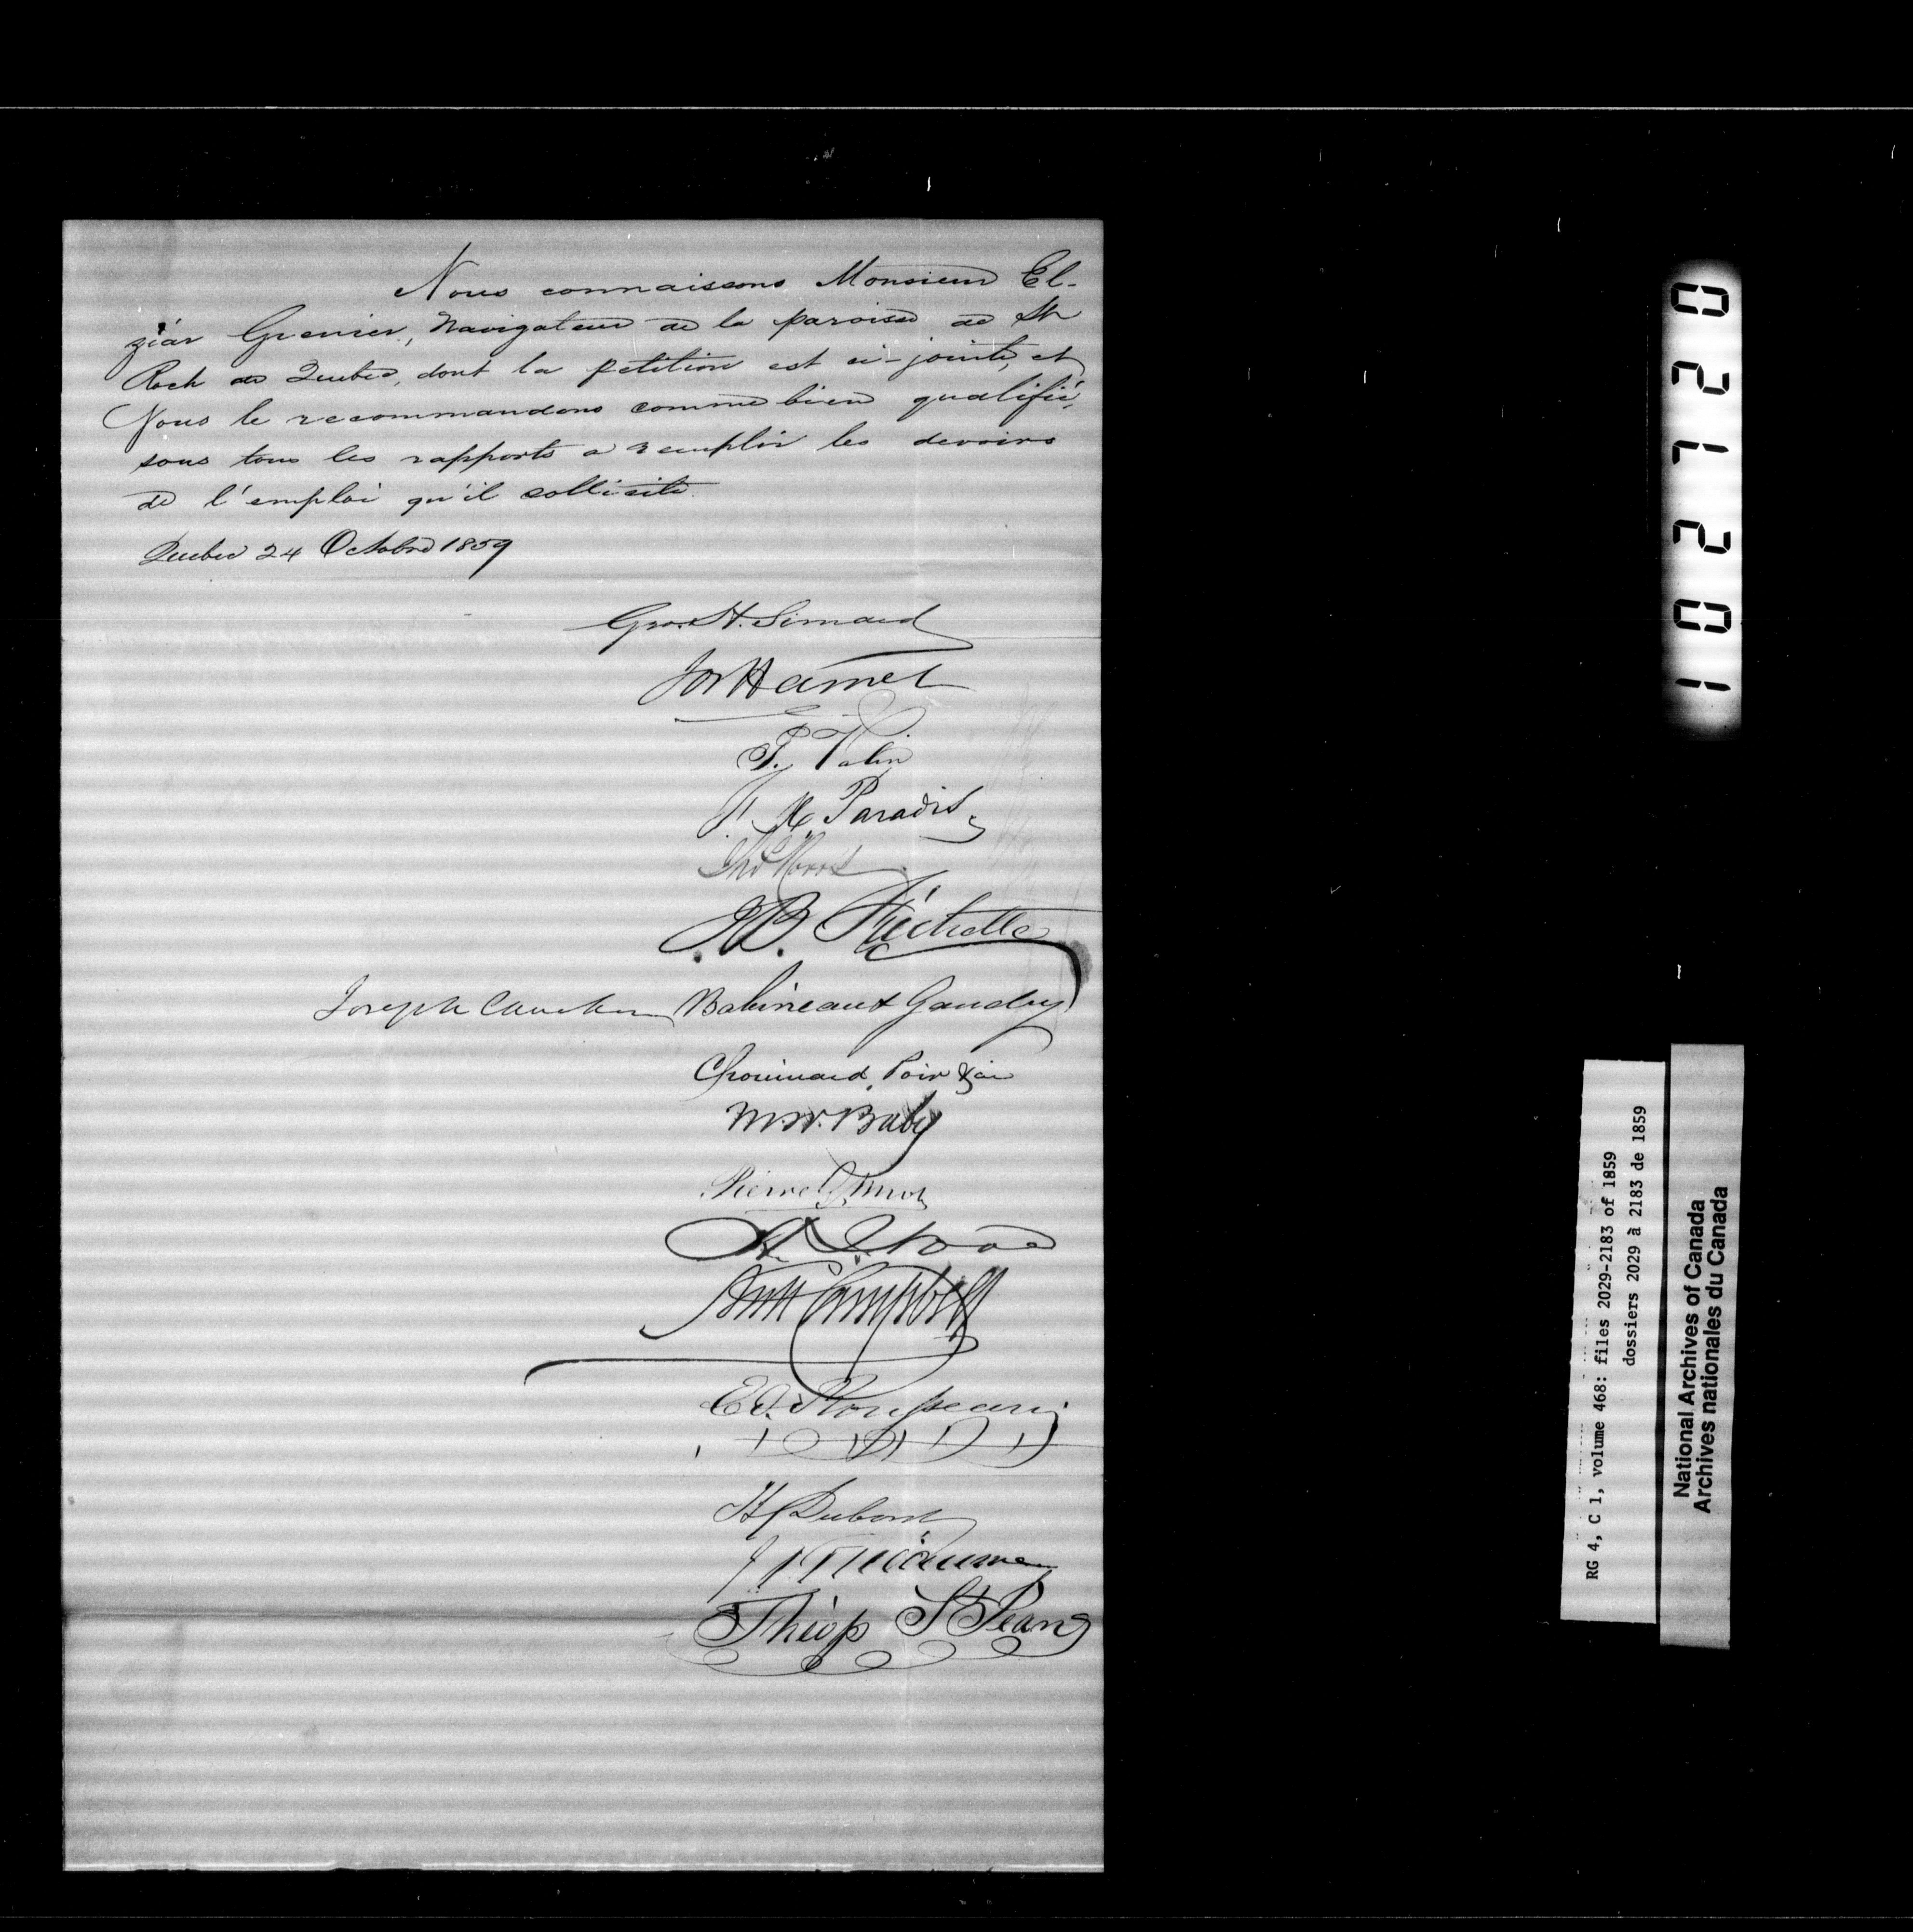 Nous connaissons Monsieur El-
zéar Grenier, Navigateur de la paroisse de St
Roch de Quebec, dont la petition est ci-jointe, et
Nous le recommandons comme bien qualifié,
sous tous les rapports a remplir les devoirs
de l'emploi qu'il sollicite.
Quebec 24 Octobre 1859
Geo. H. Simard
Jos Hamel
P. Valin
F. X. Paradis
J.B. Fréchette
Joseph Cauchon Babineau & Gaudry
Chouinard, Poir & Cie
M.W. Baby
Pierre
Campbell
Ed. Rousseau
H Dubord
Théop St Jean
01720
RG 4, C 1, volume 468: files 2029-2183 of 1859
dossiers 2029 à 2183 de 1859
National Archives of Canada
Archives nationales du Canada